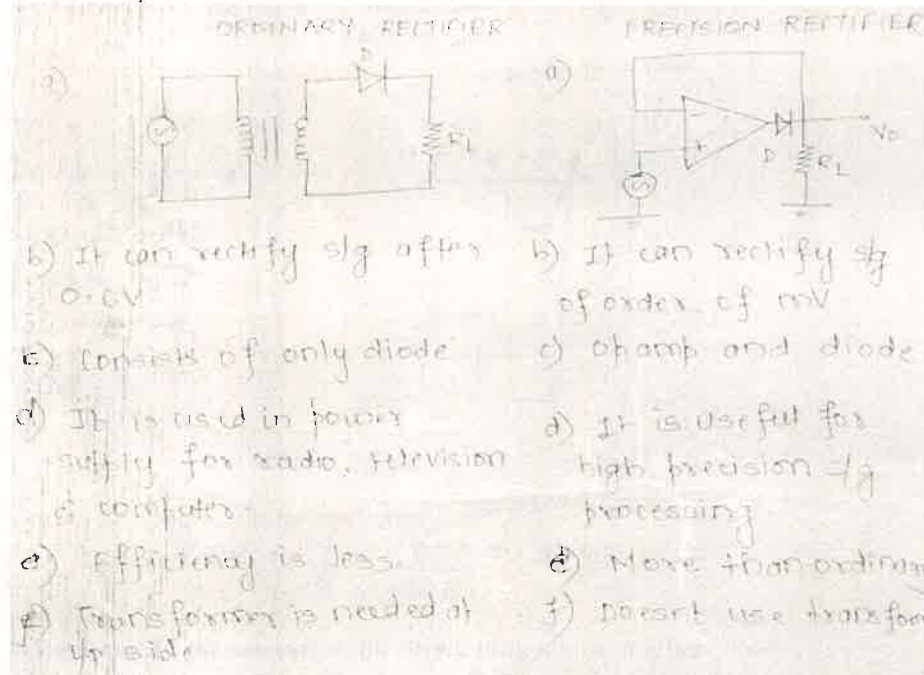 ORDINARY RECTIFIER
a)
D
RL
b) It can rectify s/g after
0.6V
c) Consists of only diode
d) It is used in power
supply for radio, television
& computer.
e) Efficiency is less.
f) Transformer is needed at
i/p side
PRECISION RECTIFIER
a)
-
+
D
Vo
RL
b) It can rectify s/g
of order of mV
c) opamp and diode
d) It is useful for
high precision s/g
processing
e) More than ordinary
f) Doesnt use transfor